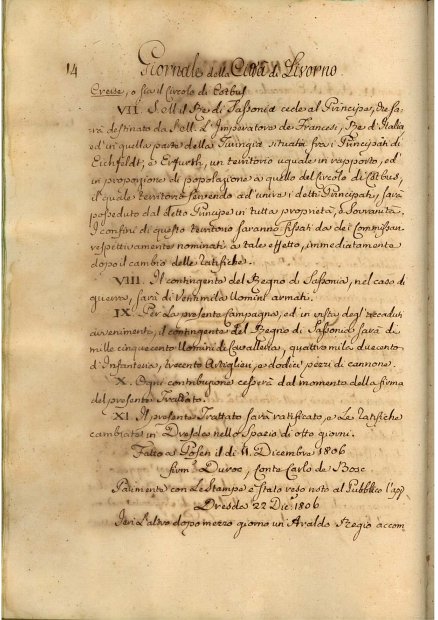 14 Giornale della Città di Livorno
Creise, o sia il Circolo di Cotbus
VII. S. M. il Re di Sassonia cede al Principe, che sa-
rà destinato da S. M. L'Imperatore de Francesi, Re d'Italia
ed in quella parte della Turingia situata fra i Principati di
Eichfeldt, e Erfurth, un territorio uguale in rapporto, ed
in proporzione di popolazione a quello del Circolo di Cotbus,
il quale territorio servendo ad unire i detti Principati, sarà
posseduto dal detto Principe in tutta proprietà, e Sovranità.
I confini di questo territorio saranno fissati da dei Commissari
respettivamente nominati a tale effetto, immediatamente
dopo il cambio delle Ratifiche.
VIII. Il contingente del Regno di Sassonia, nel caso di
guerra, sarà di Ventimila Uomini armati.
IX. Per la presente Campagna, ed in vista degl'accaduti
avvenimenti, il contingente del Regno di Sassonia sarà di
mille cinquecento Uomini di Cavalleria, quattro mila duecento
d'Infanteria, trecento Artiglieri, e dodici pezzi di cannone.
X. Ogni contribuzione cesserà dal momento della firma
del presente Trattato.
XI. Il presente Trattato sarà ratificato, e Le Ratifiche
cambiate in Dresda nello Spazio di otto giorni.
Fatto a Posen il dì 11. Dicembre 1806
firm. Duroc, Conte Carlo de Bose
Parimente con Le Stampe è Stato reso noto al Pubblico l'app
Dresda 22 Dic. 1806
Jeri L'altro dopo mezzo giorno un Araldo Regio accom